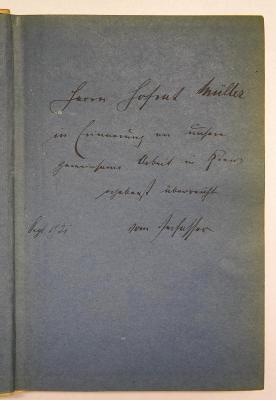 Herrn Hofrat Müller
in Erinnerung an unsere
gemeinsame Arbeit in Wien
ergebenst überreicht
Sept. vom Verfasser